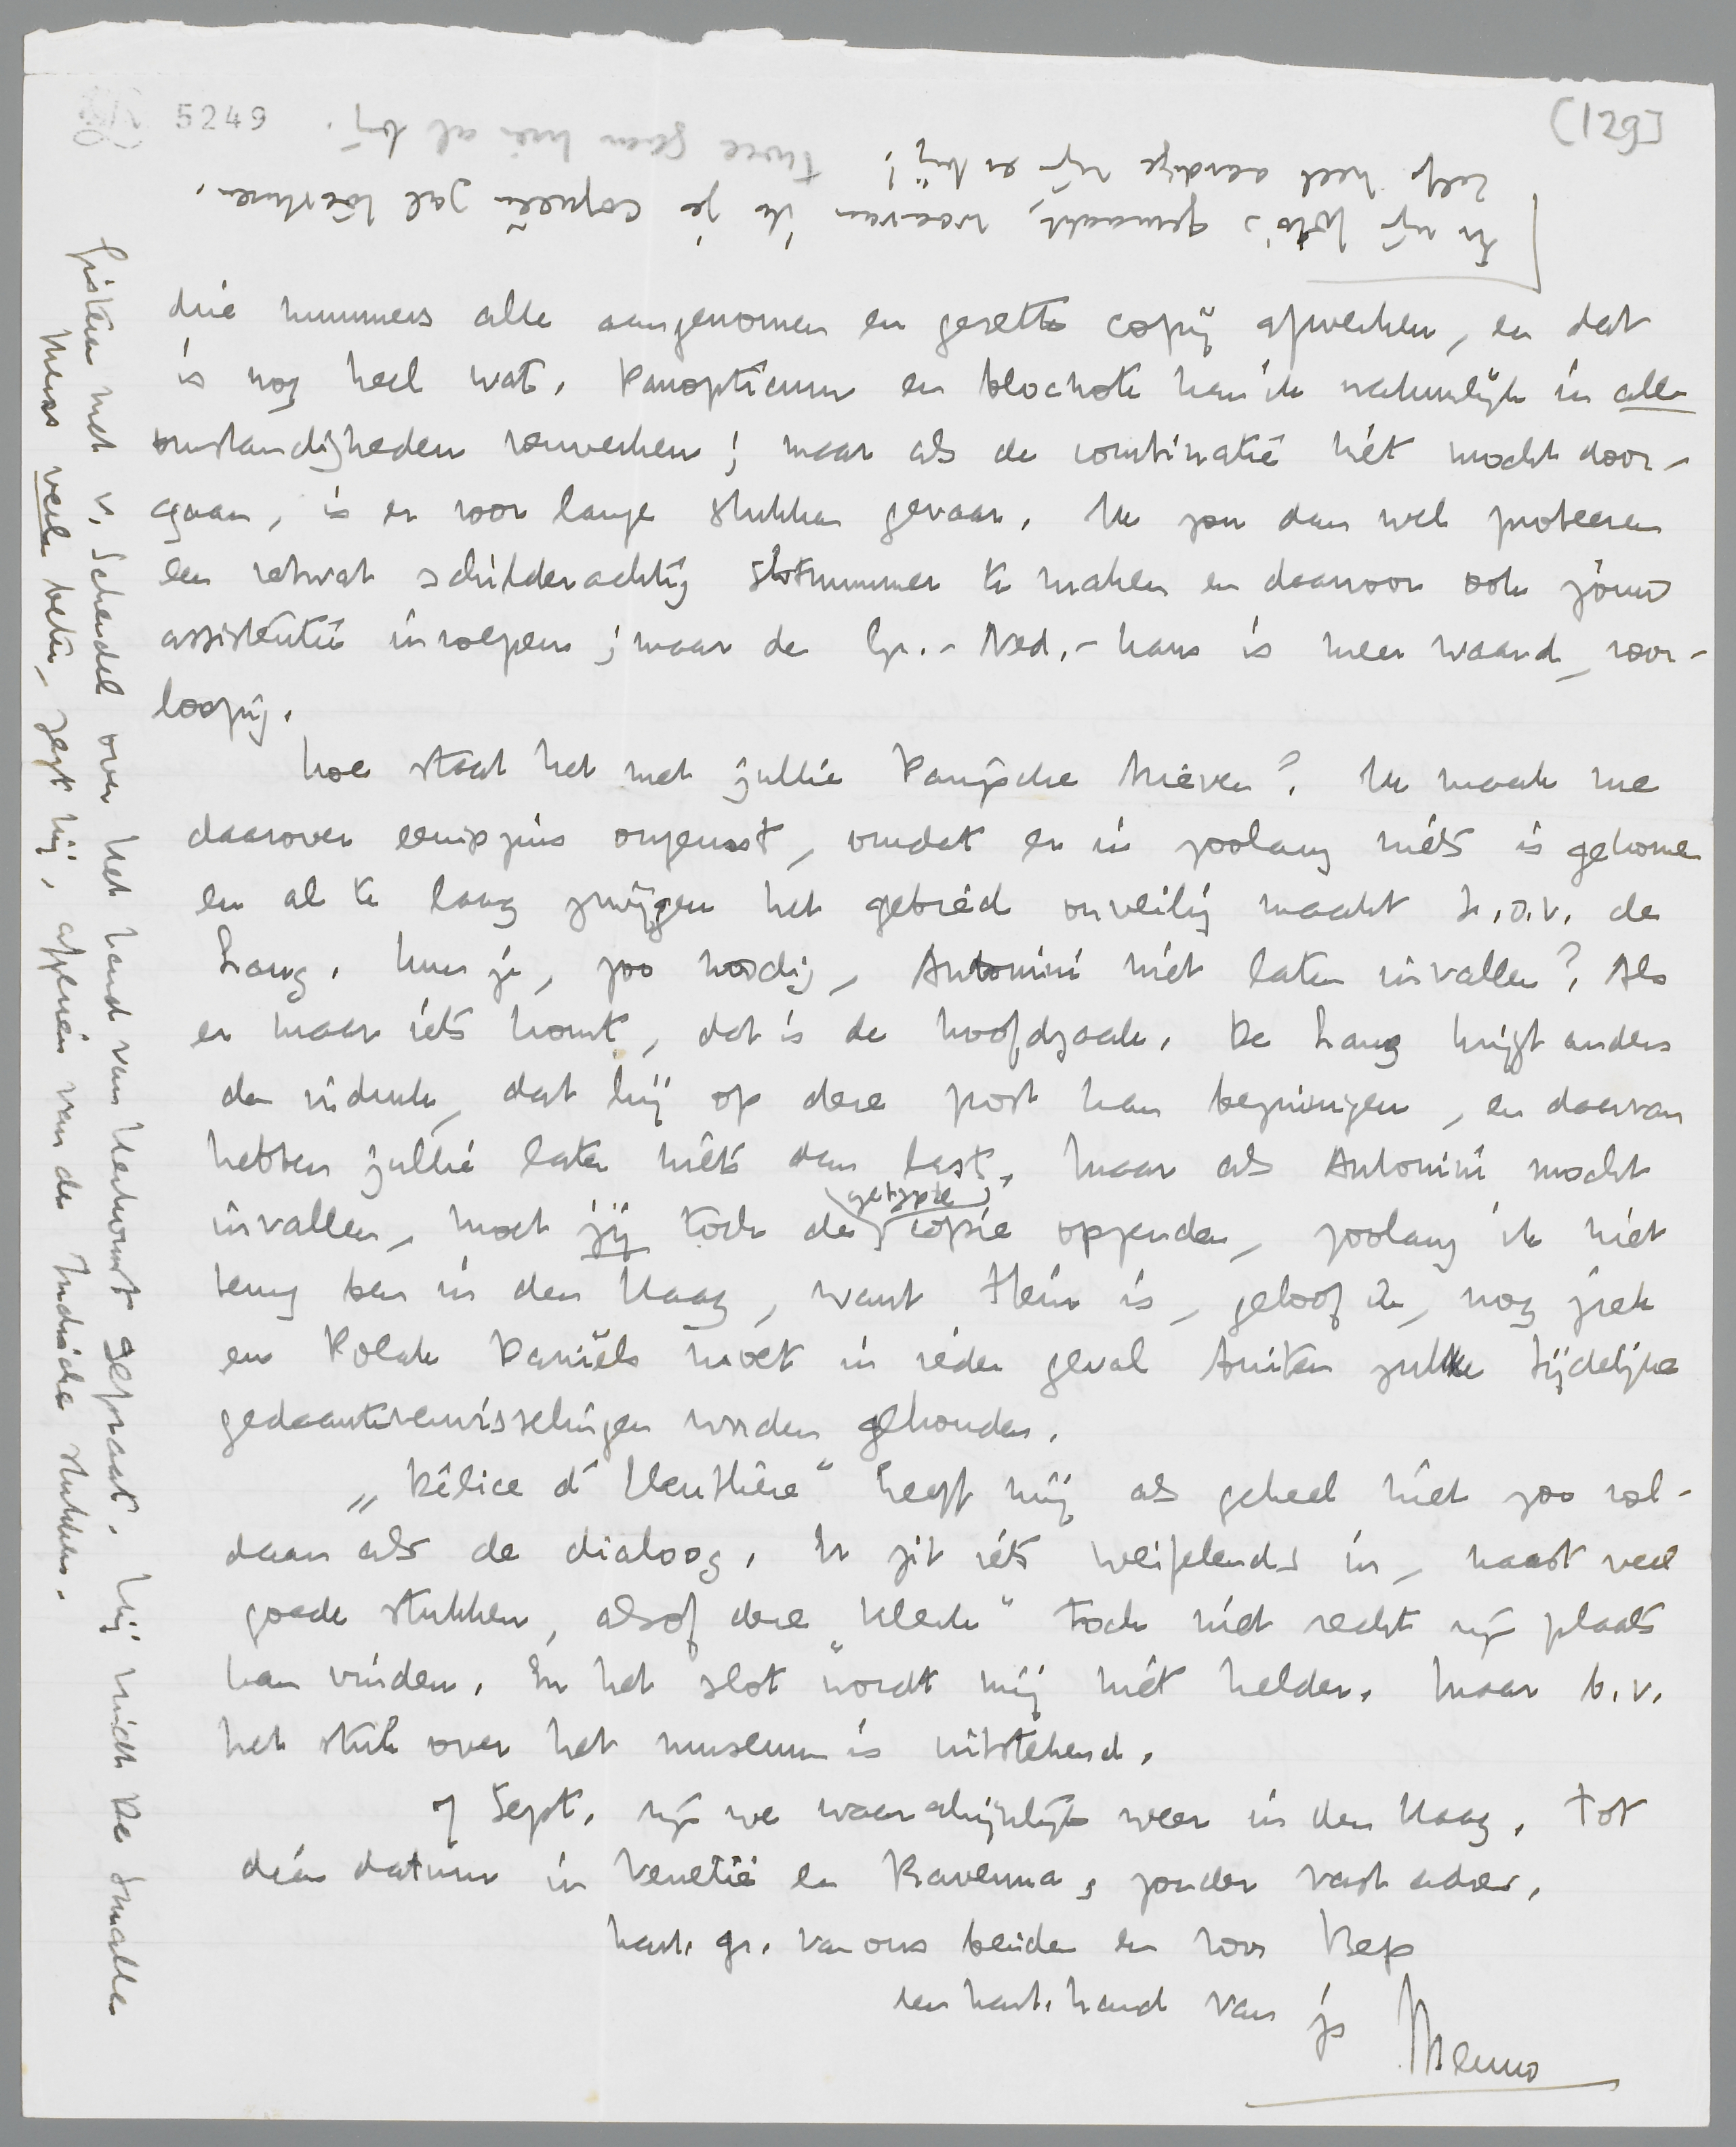 5249
[129]
Er zijn foto's gemaakt, waarvan ik je copieën zal toesturen.
Zelfs heel aardige zijn er bij! Twee gaan hier al bij.
drie nummers alle aangenomen en gezette copij afwerken, en dat
is nog heel wat. Panopticum en blocnote kan ik natuurlijk in alle
omstandigheden verwerken; maar als de combinatie niet mocht door-
gaan, is er voor lange stukken gevaar. Ik zou dan wel probeeren
een ietwat schilderachtig slotnummer te maken en daarvoor ook jouw
assistentie inroepen; maar de Gr.-Ned.-kans is meer waard, voor-
loopig.
Hoe staat het met jullie Parijsche brieven? Ik maak me
daarover eenigszins ongerust, omdat er in zoolang niets is gekomen
en al te lang zwijgen het gebied onveilig maakt t.o.v. de
Lang. Kun je, zoo noodig, Antonini niet laten invallen? Als
er maar iets komt, dat is de hoofdzaak. De Lang krijgt anders
de indruk, dat hij op deze post kan bezuinigen, en daarvan
hebben jullie later niets dan last. Maar als Antonini mocht
invallen, moet jij toch de (getypte) copie opzenden, zoolang ik niet
terug ben in den Haag, want Hein is, geloof ik, nog ziek
en Polak Daniels moet in ieder geval buiten zulke tijdelijke
gedaanteverwisselingen worden gehouden.
„Délice d'Eleuthère" heeft mij als geheel niet zoo vol-
daan als de dialoog. Er zit iets weifelends in, naast veel
goede stukken, alsof deze „kleck" toch niet recht zijn plaats
kan vinden. En het slot wordt mij niet helder. Maar b.v.
het stuk over het museum is uitstekend.
7 Sept. zijn we waarschijnlijk weer in den Haag. Tot
dien datum in Venetië en Ravenna, zonder vast adres.
hart. gr. van ons beiden en voor Bep
een hart. hand van je Menno
Gisteren met v. Schendel over Het Land van Herkomst gepraat. Hij vindt De Smalle
Mens veel beter, zegt hij, afgezien van de Indische stukken.